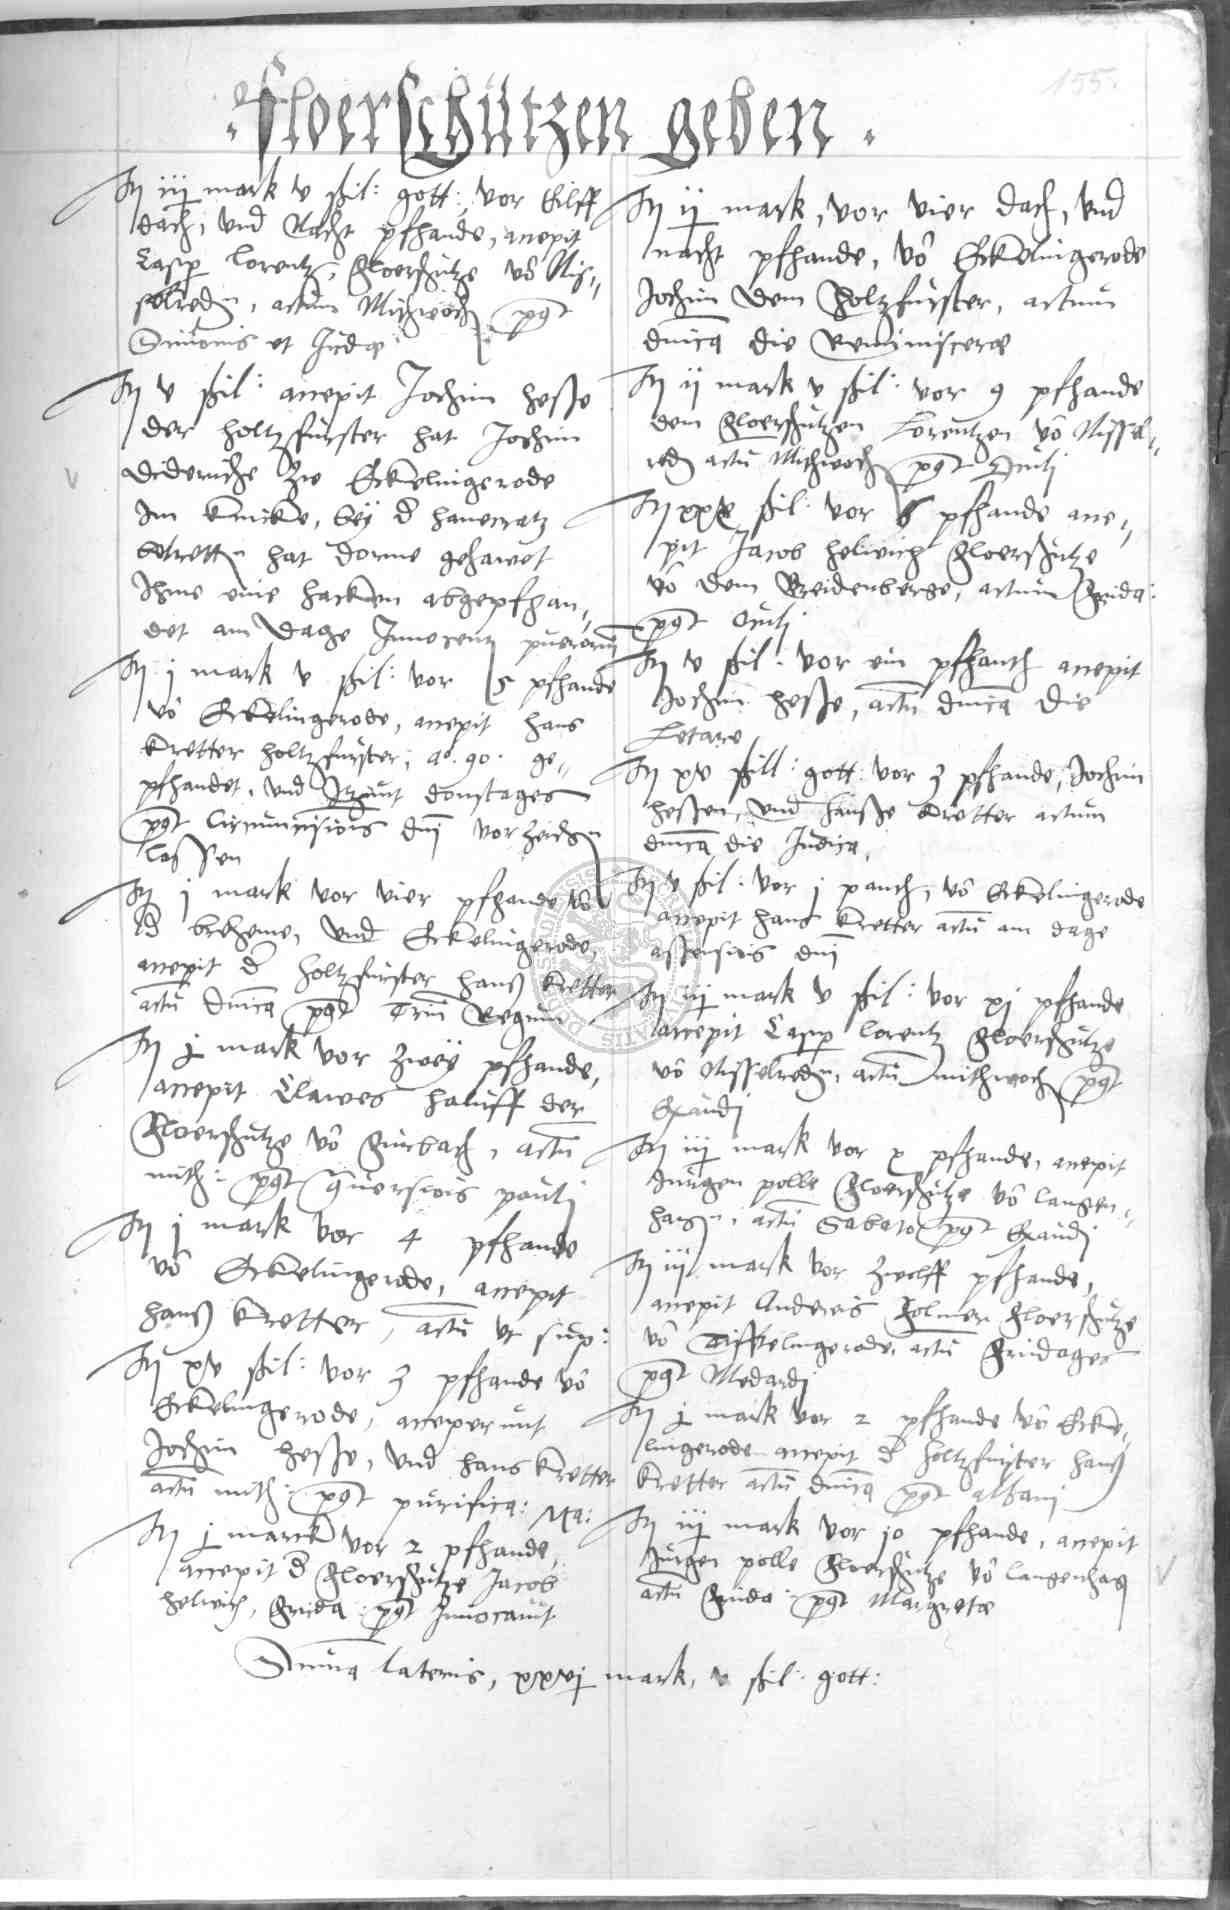 155.
Floerschützen geben.
It iij mark v ßil: gott: vor Eilff
dach, und Nacht pfhande, accepit
Casp Lorentz, floerschutze vô Nis„
selredn, actum Mithwoch post
Simonis et Judæ
It v ßil: accepit Jochim Hesse
der holtzfürster hat Jochim
Dideriche zw Eckelingerode
Im knicke, beÿ d hanecratz
bdtrettn hat dorine gehawet
Ihme eine hacken abgepfhan„
det am Dage Innocentz puerorum
It j mark v ßil: vor 5 pfhande
vô Eckelingerode, accepit hans
kretter holtzfurster, aô. 90. ge„
pfhandet, und Itzunt donstages
post Circumcisiois dni vorzeichn
lassen
It j mark vor vier pfhande vô
d breheme, und Eckelingerode,
accepit d holtzfurster hanß kretter
actu dnica post Triu Regum
It j mark vor zweÿ pfhande,
accepit Clawes hauff der
floerschutze vô furbach, actu
mith: post Conversiois pauli
It j mark vor 4 pfhande
vô Eckelingerode, accepit
hanß kretter, actu ut sup:
It xv ßil: vor 3 pfhande vô
Eckelingerode, acceperunt
Jochim hesse, und hans kretter
actu mith: post purifica: Ma:
It j marck vor 2 pfhande,
accepit d floerschutze Jacob
helwich, frida: post Invocavit
It ij mark, vor vier dach, und
nacht pfhande, vô Eckelingerode
Jochim dem Holtzfürster, actum
dnica die Reminiscere
It ij mark v ßil: vor 9 pfhande
dem floerschutzen Lorentzen vô Nissel„
redn actu Mithwoch post Oculj
It xxx ßil: vor 6 pfhande acce„
pit Jacob helwich floerschutze
vô dem Breidenberge, actum frida:
post Oculj
It v ßil: vor ein pfhanth accepit
Jochim hesse, actu dnica die
Letare
It xv ßill: gott: vor 3 pfhande, Jochim
hessen, und hanße kretter actum
dnica die Judica,
It v ßil: vor j panth, vô Eckelingerode
accepit hans kretter actu am dage
assensiois dni
It iij mark v ßil: vor xj pfhande
accepit Casp lorentz floerschutze
vô Nisselredn, actu mithwoch post
Exaudj
It iij mark vor x pfhande, accepit
Jurgen polle floerschutze vô langen„
hagn, actu Sabato post Exaudj
It iij mark vor zwolff pfhande,
accepit Andereis Holmer floerschutze
vô Tifftelingerode, actu fridages
post Medardj
It j mark vor 2 pfhande vô Ecke„
lingerode accepit d holtzfurster hanß
kretter actu dnica post albani
It iij mark vor 10 pfhande, accepit
Jürgen polle floerschutze vô langenhag
actu frida: post Margretæ
Suma lateris, xxvj mark, v ßil: gott: